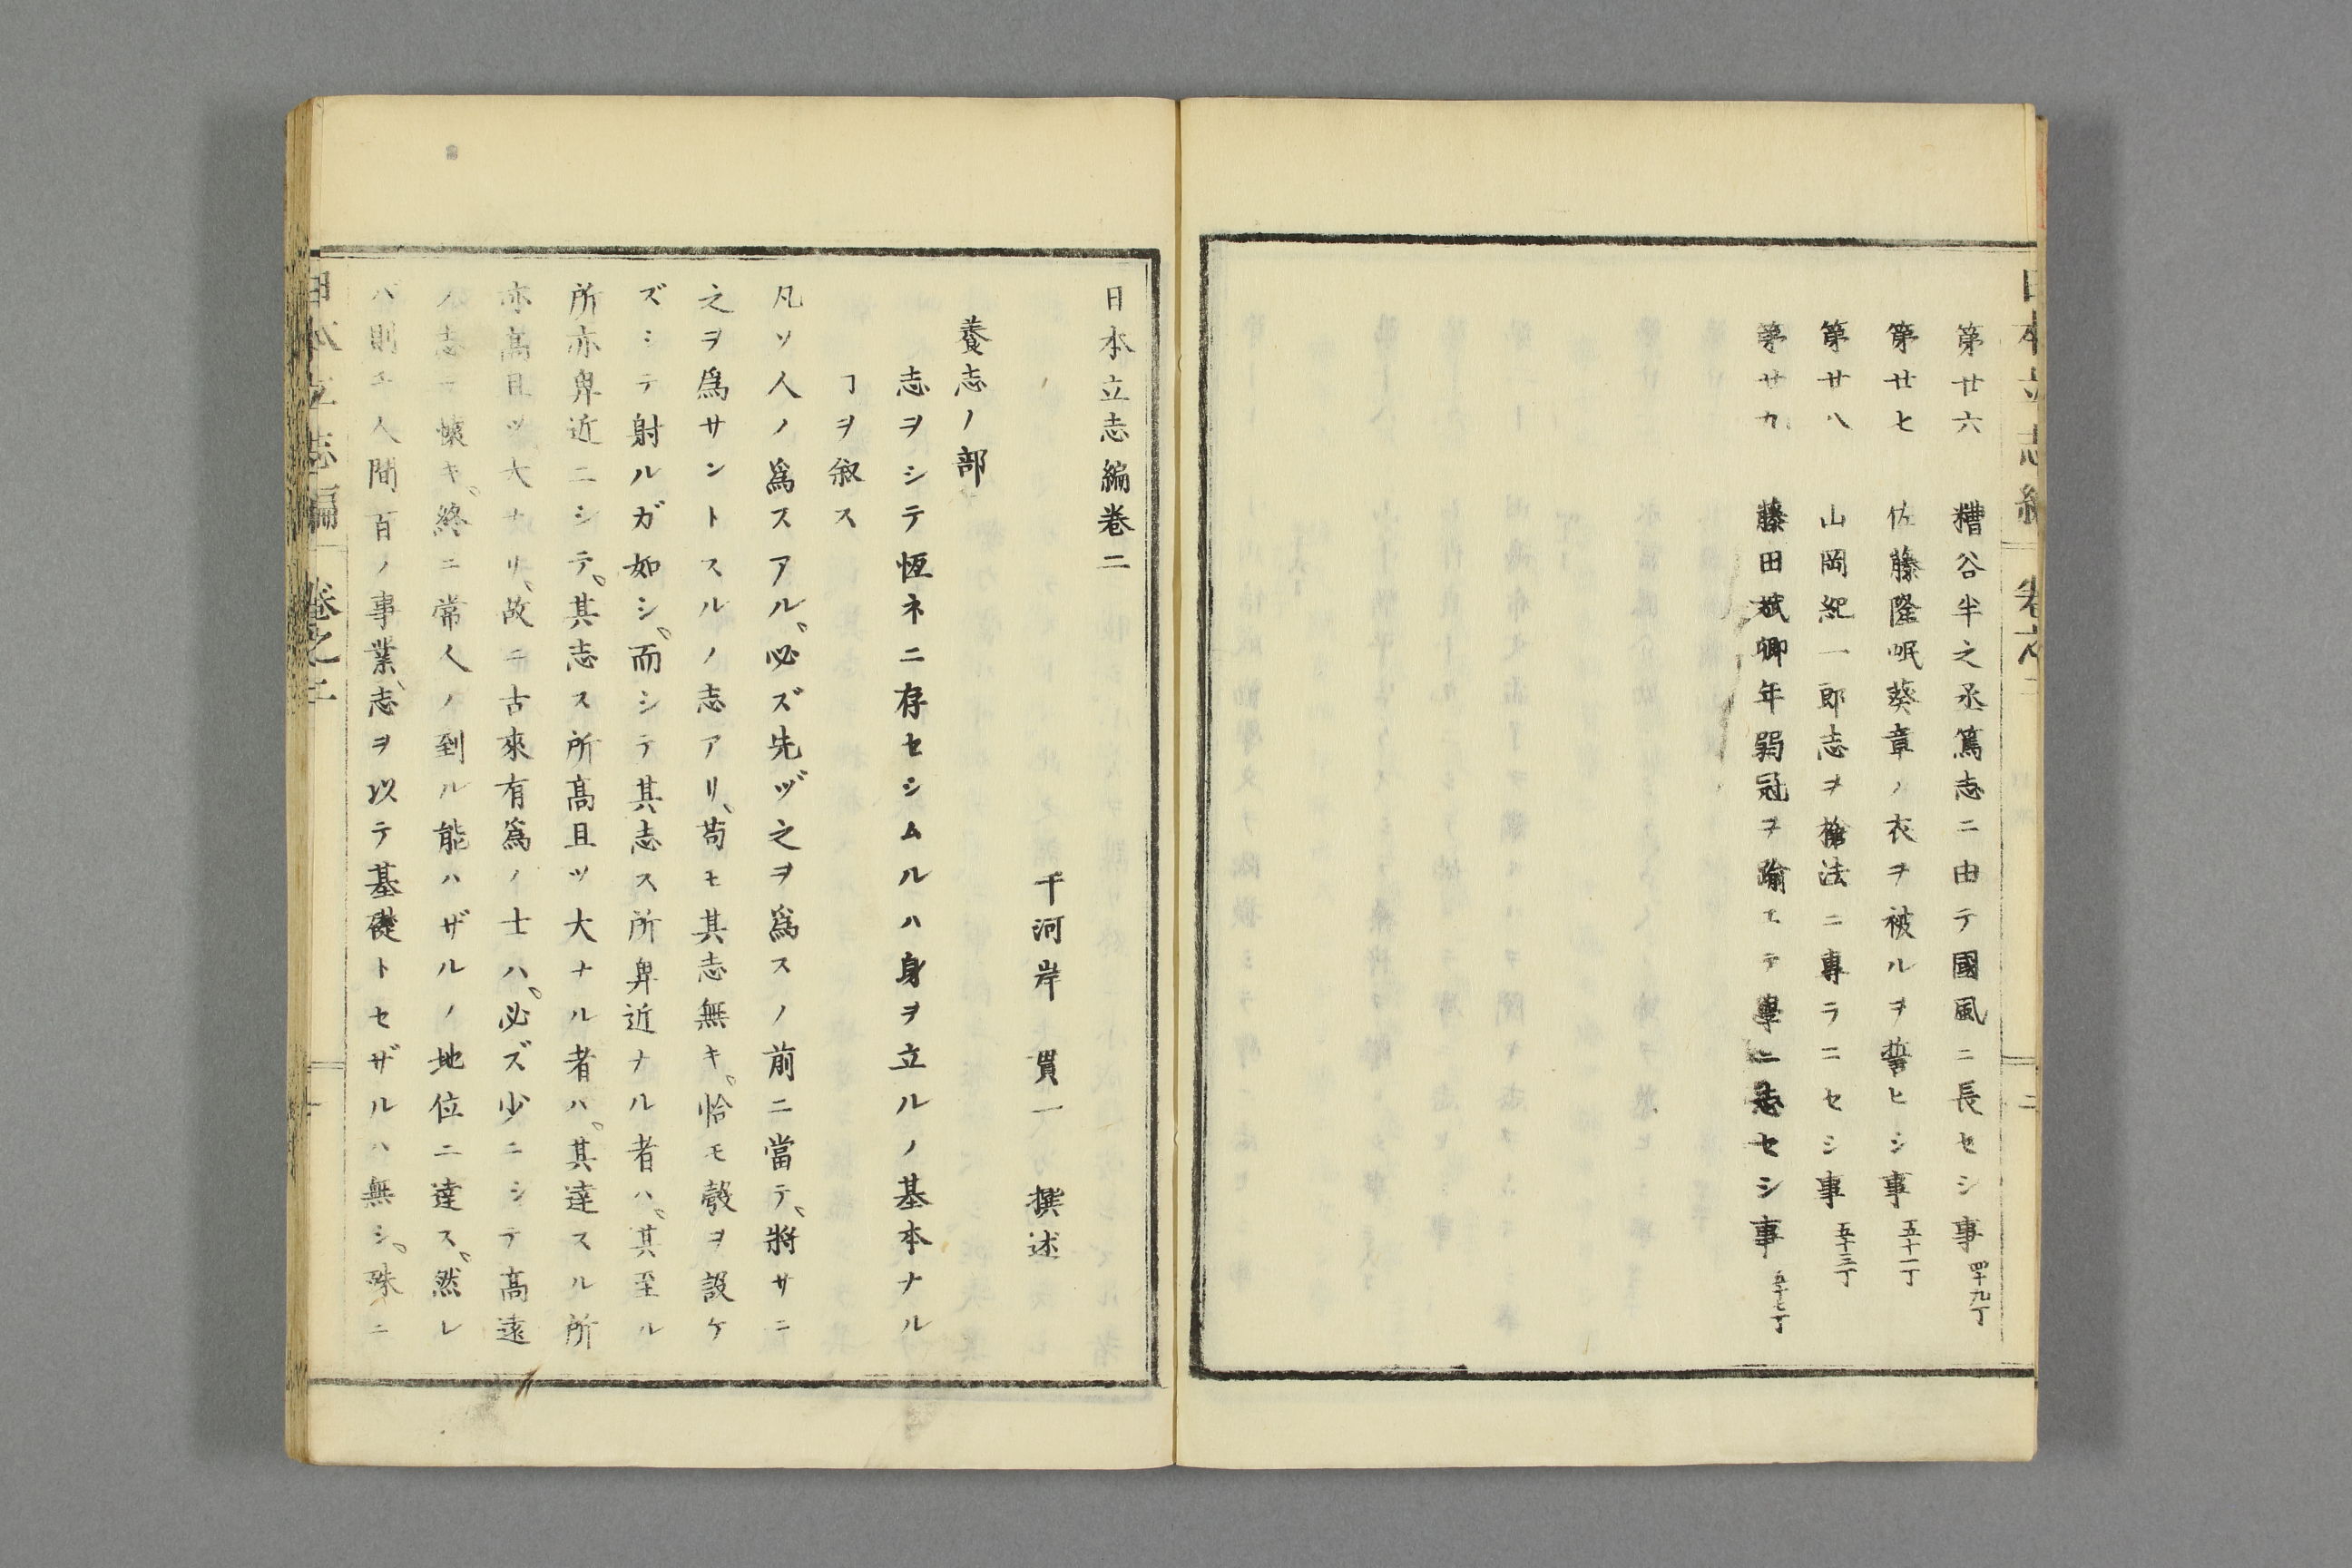 第廿六 糟谷半之丞篤志ニ由テ國風ニ長セシ事 四十九丁
第廿七 佐藤隆岷葵章ノ衣ヲ被ルヲ誓ヒシ事 五十一丁
第廿八 山岡紀一郎志ヲ槍法ニ專ラニセシ事 五十三丁
第廿九 藤田斌卿年弱冠ヲ踰エテ學ニ志セシ事 五十七丁
日本立志編卷二
千河岸 貫一 撰述
養志ノ部
志ヲシテ恆ネニ存セシムルハ身ヲ立ルノ基本ナル
ヿヲ叙ス
凡ソ人ノ爲スアル、必ズ先ヅ之ヲ爲スノ前ニ當テ、將サニ
之ヲ爲サントスルノ志アリ、苟モ其志無キ、恰モ彀ヲ設ケ
ズシテ射ルガ如シ、而シテ其志ス所卑近ナル者ハ、其至ル
所亦卑近ニシテ、其志ス所高且ツ大ナル者ハ、其達スル所
亦高且ツ大ナリ、故ニ古來有爲ノ士ハ、必ズ少ニシテ高遠
ノ志ヲ懷キ、終ニ常人ノ到ル能ハザルノ地位ニ達ス、然レ
バ則チ人間百ノ事業、志ヲ以テ基礎トセザルハ無シ、殊ニ
日本立志編 卷之二